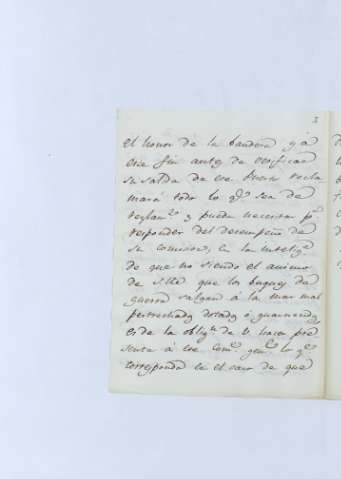 3
el honor de la bandera y á
ese fin antes de verificar
su salida de ese Puerto recla
mará todo lo q.e sea de
reglam.to y pueda necesitar p.a
responder del desempeño de
su comision, en la intelig.a
de que no siendo el animo
de S.M. que los buques de
guerra salgan á la mar mal
pertrechados dotados ó guarnecidos
es de la oblig.n de V. hacer pre
sente á ese Com.te gen.l lo q.e
corresponda en el caso de que